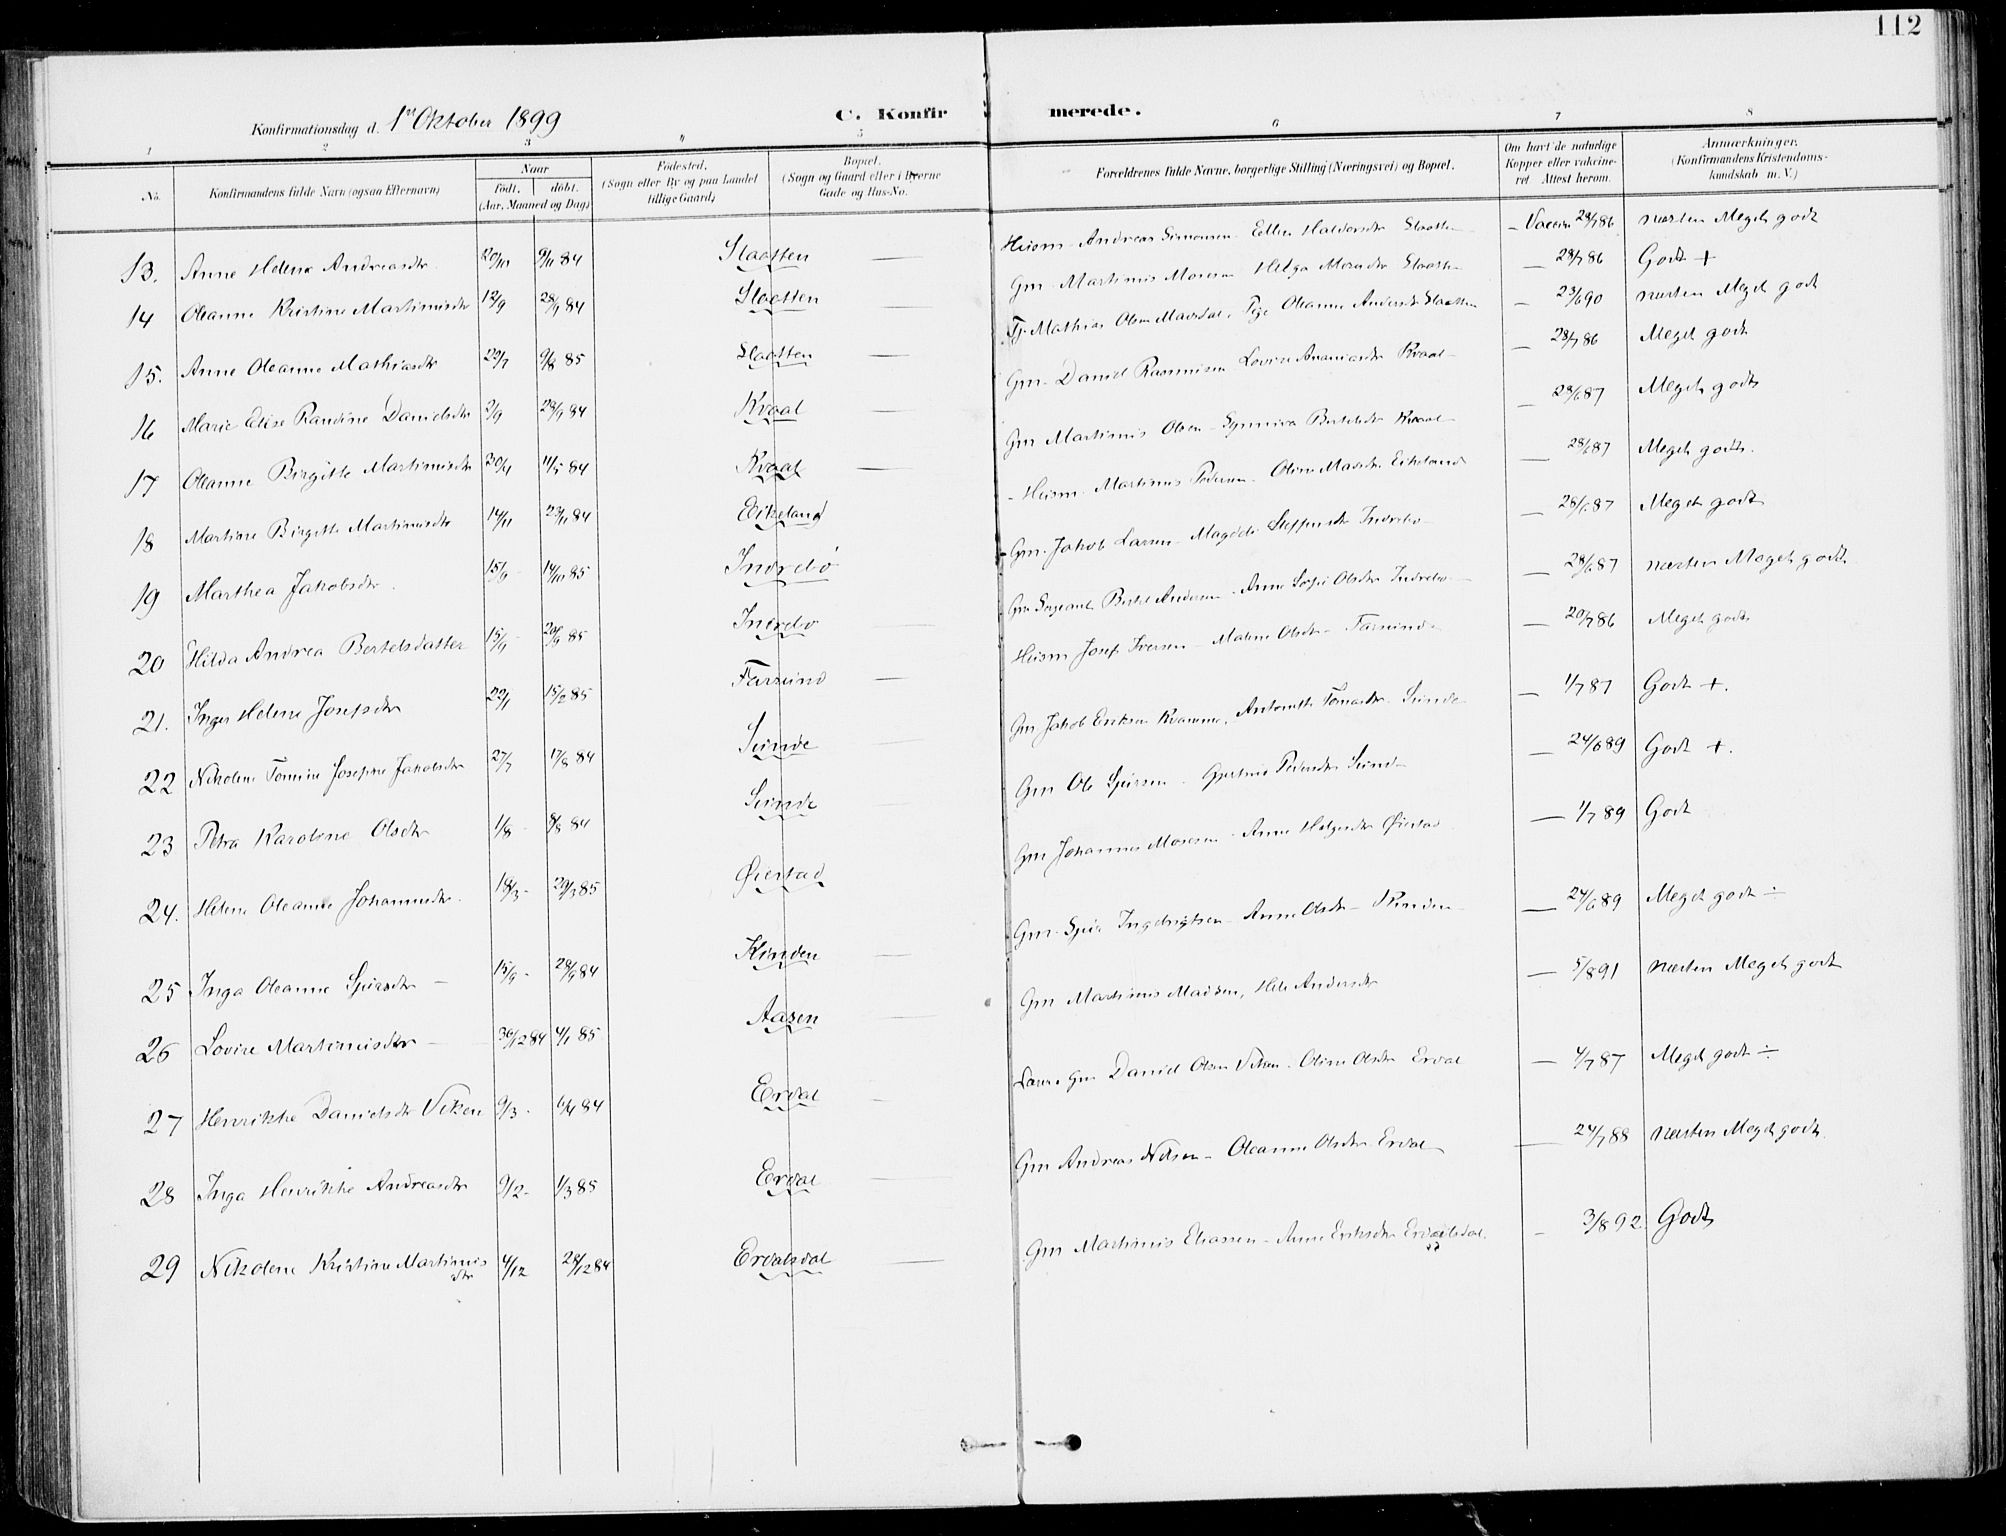 112
Konfirmationsdag d. 1ste Oktober 1899 C. Konfirmerede.
1 2 3 4 5 6 7 8
No. Konfirmandens fulde Navn (ogsaa Efternavn) Naar født, døbt. (Aar, Maaned og Dag) Fødested. (Sogn eller By og paa Landet tillige Gaard) Bopæl. (Sogn og Gaard eller i Byerne Gade og Hus-No. Forældrenes fulde Navne, borgerlige Stilling (Næringsvei) og Bopæl. Om havt de naturlige Kopper eller vakcineret. Attest herom. Anmærkninger. (Konfirmandens Kristendomskundskab m. V.)
13. Anne Helene Andreasdtr 20/10 9/11 84 Slaatten — Huusm. Andreas Simonsen Ellen Slaatten — Vaccin 28/7 86 næsten Meget godt
14 Oleanne Kristine Martinusdtr 12/9 28/9 84 Slaatten — Gm. Martinus Mosesen Helga Slaatten — 28/7 86 Godt +
15. Anne Oleanne Mathiasdtr 22/7 9/8 85 Slaatten — Mathias Olsen Pige Oleanne Andersdtr Slaatten — 23/6 90 næsten Meget godt
16 Marie Elise Randine Danielsdtr 2/9 28/9 84 Kvaal — Gm. Daniel Rasmusen Lovise Ananiasdtr Kvaal — 28/7 86 Meget godt
17 Oleanne Birgitte Martinusdtr 20/4 11/5 84 Kvaal — Gm Martinus Olsen Synneva Bertelsdtr Kvaal — 28/6 87 Meget godt
18 Martine Birgitte Martinusdtr 14/11 23/11 84 Eikeland — Huusm. Martinus Pedersen Oline Madsdtr Eikeland — 28/6 87 Meget godt.
19 Marthea Jakobsdtr. 15/9 14/10 85 Indrebø — Gm. Jakob Larsen Magdele Steffensdtr Indrebø — 28/6 87 Meget godt
20 Hilda Andrea Bertelsdatter 15/9 20/9 85 Indrebø — Gm Sergeant Bertel Andersen Anne Sofie Olsdtr Indrebø — 28/6 87 næsten Meget godt
21. Inger Helene Josefsdtr 22/1 15/2 85 Farsund — Huusm Josef Iversen Malene Olsdtr Farsund — 20/7 86 Meget godt
22 Nikoline Tomine Josefine Jakobsdtr 27/7 17/8 84 Sunde — Gm Jakob Eriksen Kvamme, Antonette Tomasdtr Sunde — 1/7 87 Godt +.
23 Petra Karoline Olsdtr 1/8 8/8 84 Sunde — Gm Ole Sjursen Gjertine Pedersdtr Sunde — 24/6 89 Godt +.
24. Helene Oleanne Johannesdtr. 18/3 29/3 85 Øiestad Gm Johannes Mosesen Anne Helgesdtr Øiestad — 1/7 89 Godt
25 Inga Oleanne Sjursdtr — 15/9 28/9 84 Kinden — Gm. Sjur Ingebrigtsen Anne Olsdtr Kinden — 24/6 89 Meget godt ÷
26 Lovise Martinusdtr — 30/12 84 4/1 85 Aasen — Gm Martinus Madsen, Andersdtr — 5/8 91 næsten Meget godt
27 Henrikke Danielsdtr Viken 9/3 6/4 84 Erdal Gm Daniel Olsen Viken Oline Olsdtr Erdal — 4/7 87 Meget godt ÷
28 Inga Henrikke Andreasdtr 9/2 1/3 85 Erdal — Gm Andreas Nilsen Oleanne Olsdtr Erdal — 24/7 88 næsten Meget godt
29 Nikoline Kristine Martinusdtr 4/12 28/12 84 Erdalsdal — Gm Martinus Eliassen Anne Eriksdtr Erdalsdal. — 3/8 92 Godt